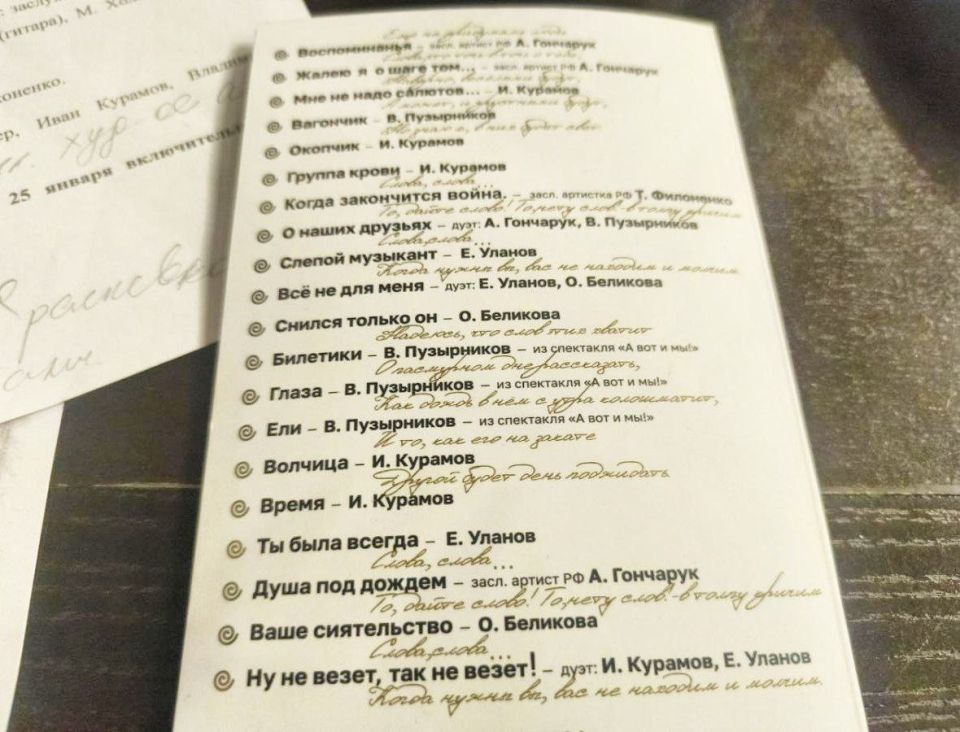 (гитара), М.
Иван Курамов,
25 января включитель
Воспоминанья – засл. артист РФ А. Гончарук
Жалею я о шаге том... – засл. артист РФ А. Гончарук
Мне не надо салютов... – И. Курамов
Вагончик – В. Пузырников
Окопчик – И. Курамов
Группа крови – И. Курамов
Слова, слова...
Когда закончится война. – засл. артистка РФ Т. Филоненко
То, дайте слово! То, нету слов! - в толпу кричим
О наших друзьях – дуэт: А. Гончарук, В. Пузырников
Слова, слова...
Слепой музыкант – Е. Уланов
Когда нужны вы, вас не находим и молчим
Всё не для меня – дуэт: Е. Уланов, О. Беликова
Снился только он – О. Беликова
Надеюсь, что слов тих хватит
Билетики – В. Пузырников – из спектакля «А вот и мы!»
О пасмурном дне рассказать,
Глаза – В. Пузырников – из спектакля «А вот и мы!»
Как дождь в нём с утра колошматит,
Ели – В. Пузырников – из спектакля «А вот и мы!»
И то, как его на закате
Волчица – И. Курамов
Другой будет день поджидать
Время – И. Курамов
Ты была всегда – Е. Уланов
Слова, слова...
Душа под дождем – засл. артист РФ А. Гончарук
То, дайте слово! То, нету слов! - в толпу кричим
Ваше сиятельство – О. Беликова
Слова, слова...
Ну не везет, так не везет! – дуэт: И. Курамов, Е. Уланов
Когда нужны вы, вас не находим и молчим.